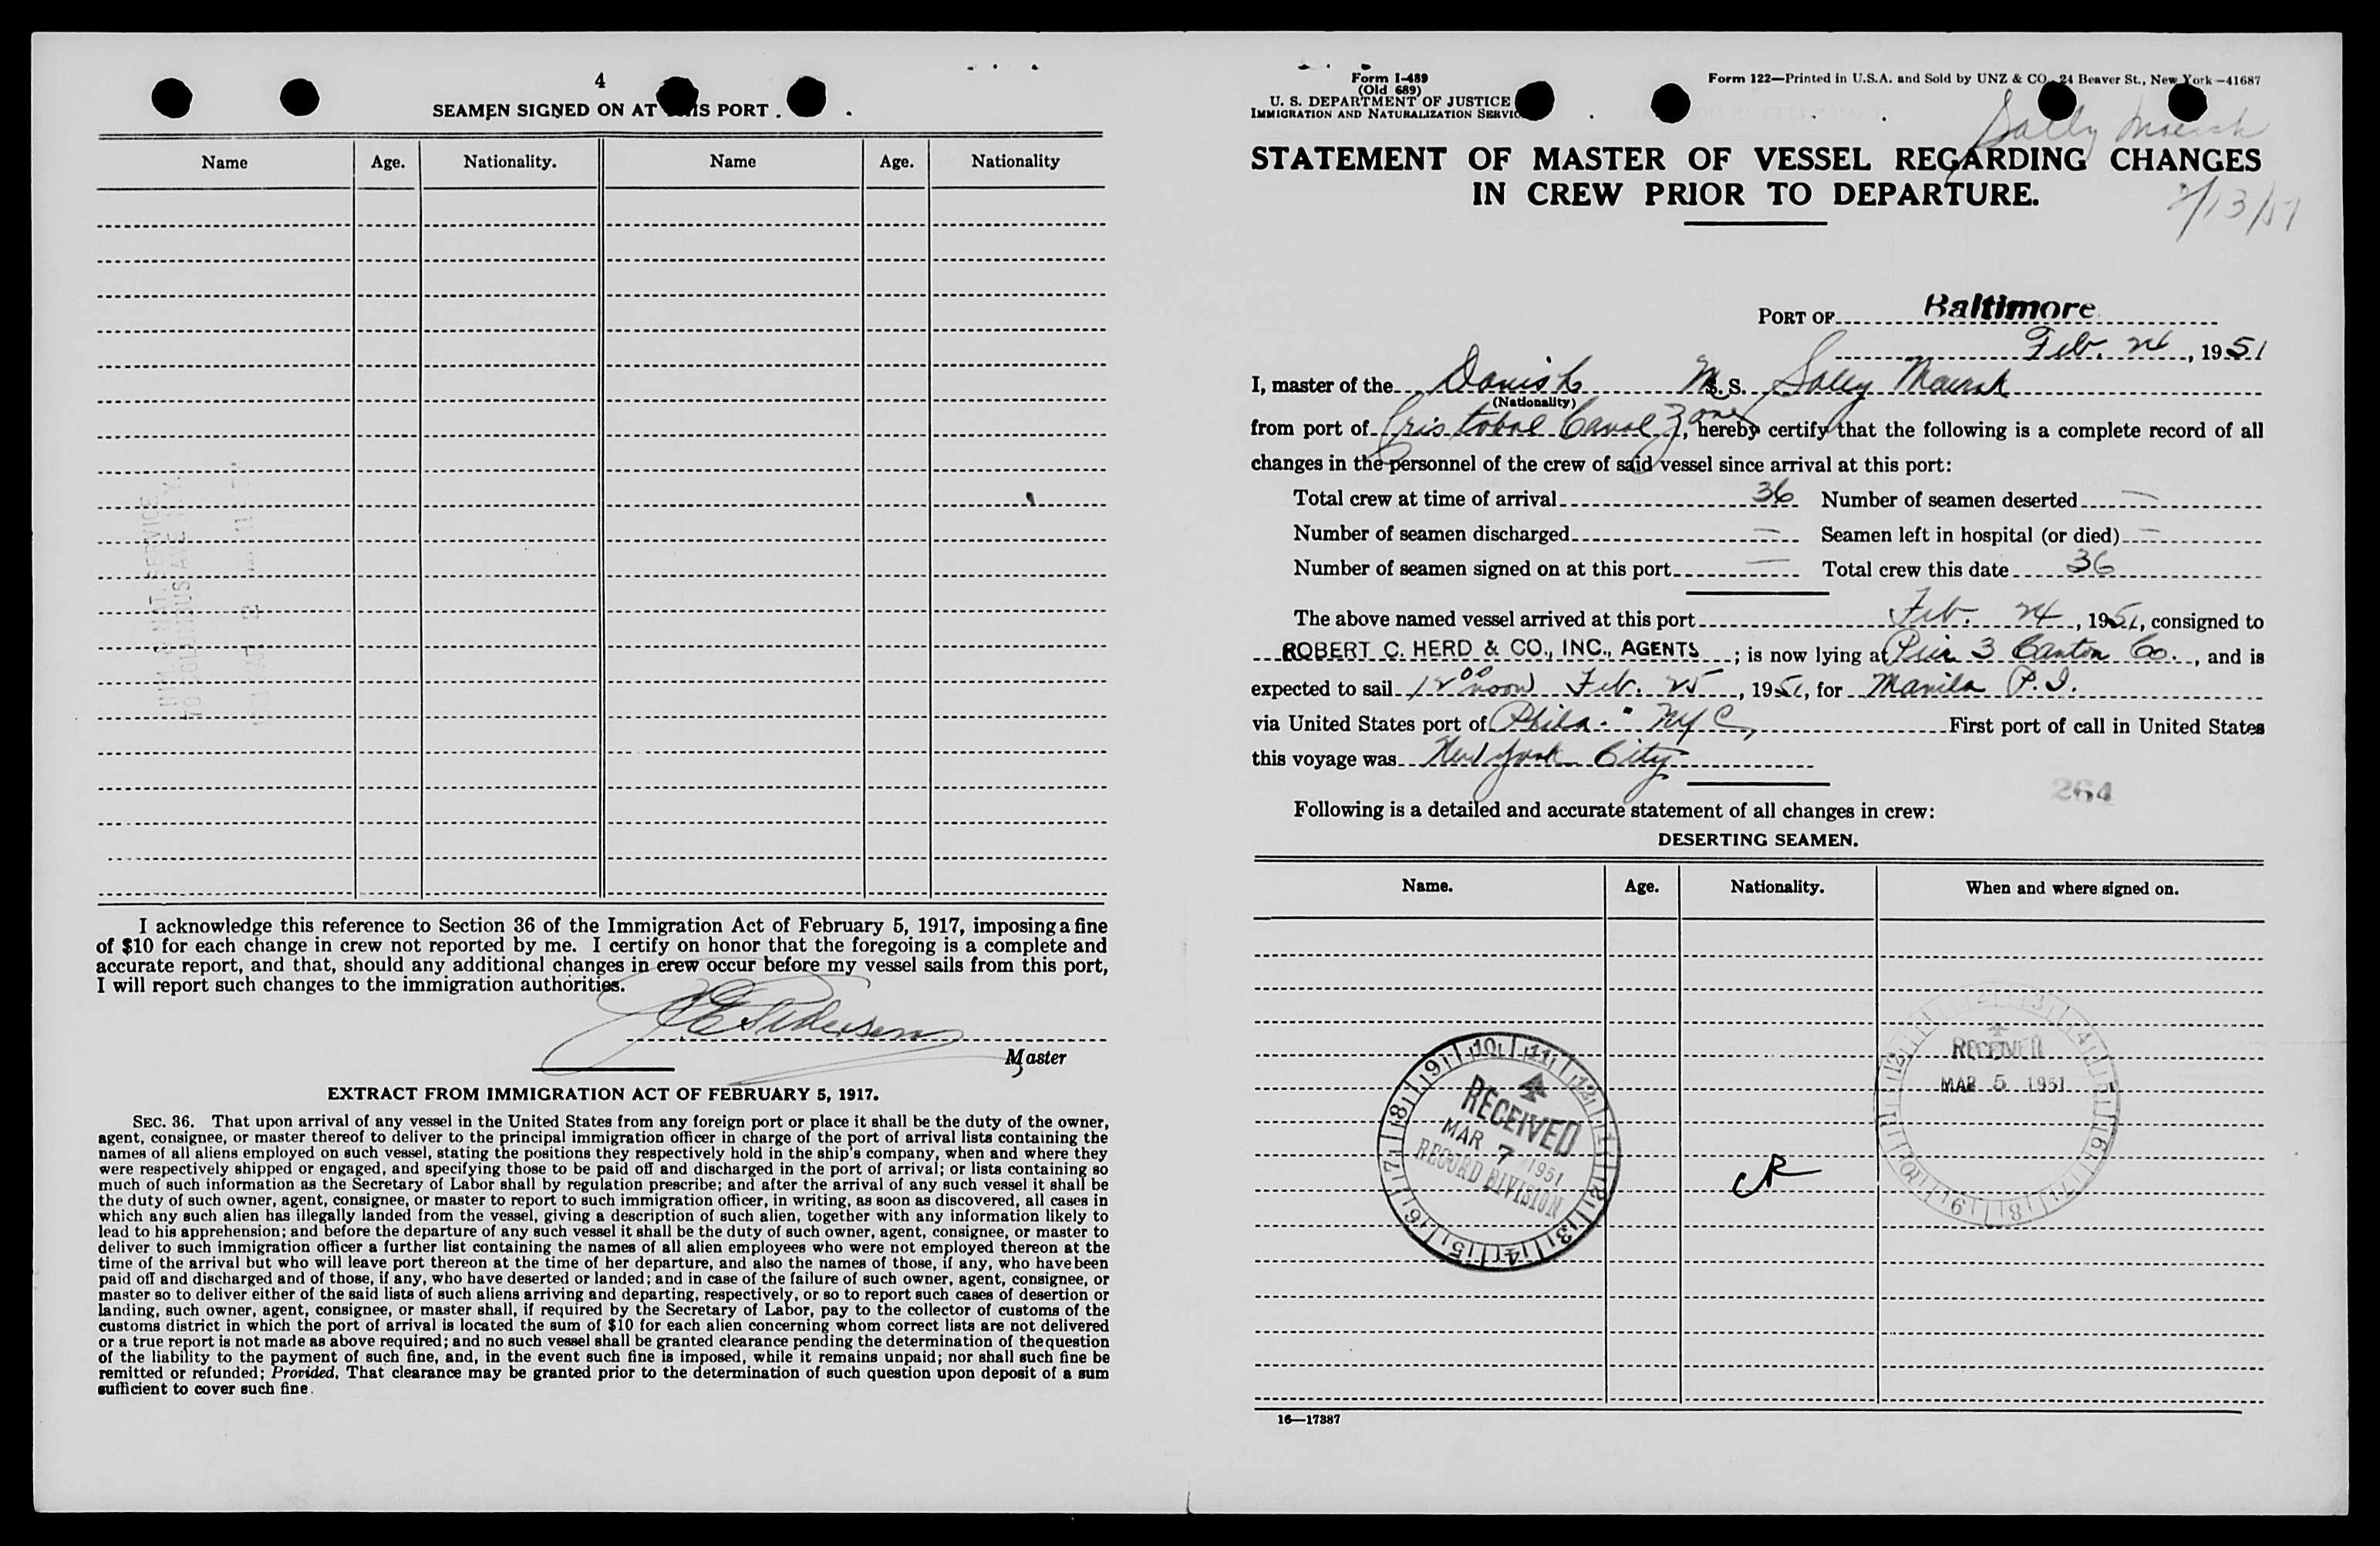 4
SEAMEN SIGNED ON AT THIS PORT .
Name Age. Nationality. Name Age. Nationality
I acknowledge this reference to Section 36 of the Immigration Act of February 5, 1917, imposing a fine
of $10 for each change in crew not reported by me. I certify on honor that the foregoing is a complete and
accurate report, and that, should any additional changes in crew occur before my vessel sails from this port,
I will report such changes to the immigration authorities.
Pedersen
Master
EXTRACT FROM IMMIGRATION ACT OF FEBRUARY 5, 1917.
SEC. 36. That upon arrival of any vessel in the United States from any foreign port or place it shall be the duty of the owner,
agent, consignee, or master thereof to deliver to the principal immigration officer in charge of the port of arrival lists containing the
names of all aliens employed on such vessel, stating the positions they respectively hold in the ship's company, when and where they
were respectively shipped or engaged, and specifying those to be paid off and discharged in the port of arrival; or lists containing so
much of such information as the Secretary of Labor shall by regulation prescribe; and after the arrival of any such vessel it shall be
the duty of such owner, agent, consignee, or master to report to such immigration officer, in writing, as soon as discovered, all cases in
which any such alien has illegally landed from the vessel, giving a description of such alien, together with any information likely to
lead to his apprehension; and before the departure of any such vessel it shall be the duty of such owner, agent, consignee, or master to
deliver to such immigration officer a further list containing the names of all alien employees who were not employed thereon at the
time of the arrival but who will leave port thereon at the time of her departure, and also the names of those, if any, who have been
paid off and discharged and of those, if any, who have deserted or landed; and in case of the failure of such owner, agent, consignee, or
master so to deliver either of the said lists of such aliens arriving and departing, respectively, or so to report such cases of desertion or
landing, such owner, agent, consignee, or master shall, if required by the Secretary of Labor, pay to the collector of customs of the
customs district in which the port of arrival is located the sum of $10 for each alien concerning whom correct lists are not delivered
or a true report is not made as above required; and no such vessel shall be granted clearance pending the determination of the question
of the liability to the payment of such fine, and, in the event such fine is imposed, while it remains unpaid; nor shall such fine be
remitted or refunded; Provided, That clearance may be granted prior to the determination of such question upon deposit of a sum
sufficient to cover such fine.
Form I-489
(Old 689)
U. S. DEPARTMENT OF JUSTICE
IMMIGRATION AND NATURALIZATION SERVICE
Form 122—Printed in U.S.A. and Sold by UNZ & CO., 24 Beaver St., New York—41687
Sally Maersk
STATEMENT OF MASTER OF VESSEL REGARDING CHANGES
IN CREW PRIOR TO DEPARTURE.
2/13/51
PORT OF Baltimore
Feb. 24, 1951
I, master of the Danish M.S. Sally Maersk
(Nationality)
from port of Cristobal Canal Zone, hereby certify that the following is a complete record of all
changes in the personnel of the crew of said vessel since arrival at this port:
Total crew at time of arrival 36 Number of seamen deserted —
Number of seamen discharged — Seamen left in hospital (or died) —
Number of seamen signed on at this port — Total crew this date 36
The above named vessel arrived at this port Feb. 24, 1951, consigned to
ROBERT C. HERD & CO., INC., AGENTS ; is now lying at Pier 3 Canton Co., and is
expected to sail 12 00 noon Feb. 25, 1951, for Manila P.I.
via United States port of Phila. " NYC, First port of call in United States
this voyage was New York City
264
Following is a detailed and accurate statement of all changes in crew:
DESERTING SEAMEN.
Name. Age. Nationality. When and where signed on.
RECEIVED
MAR 5 1951
RECEIVED
MAR 7 1951
RECORD DIVISION
CR
16—17387